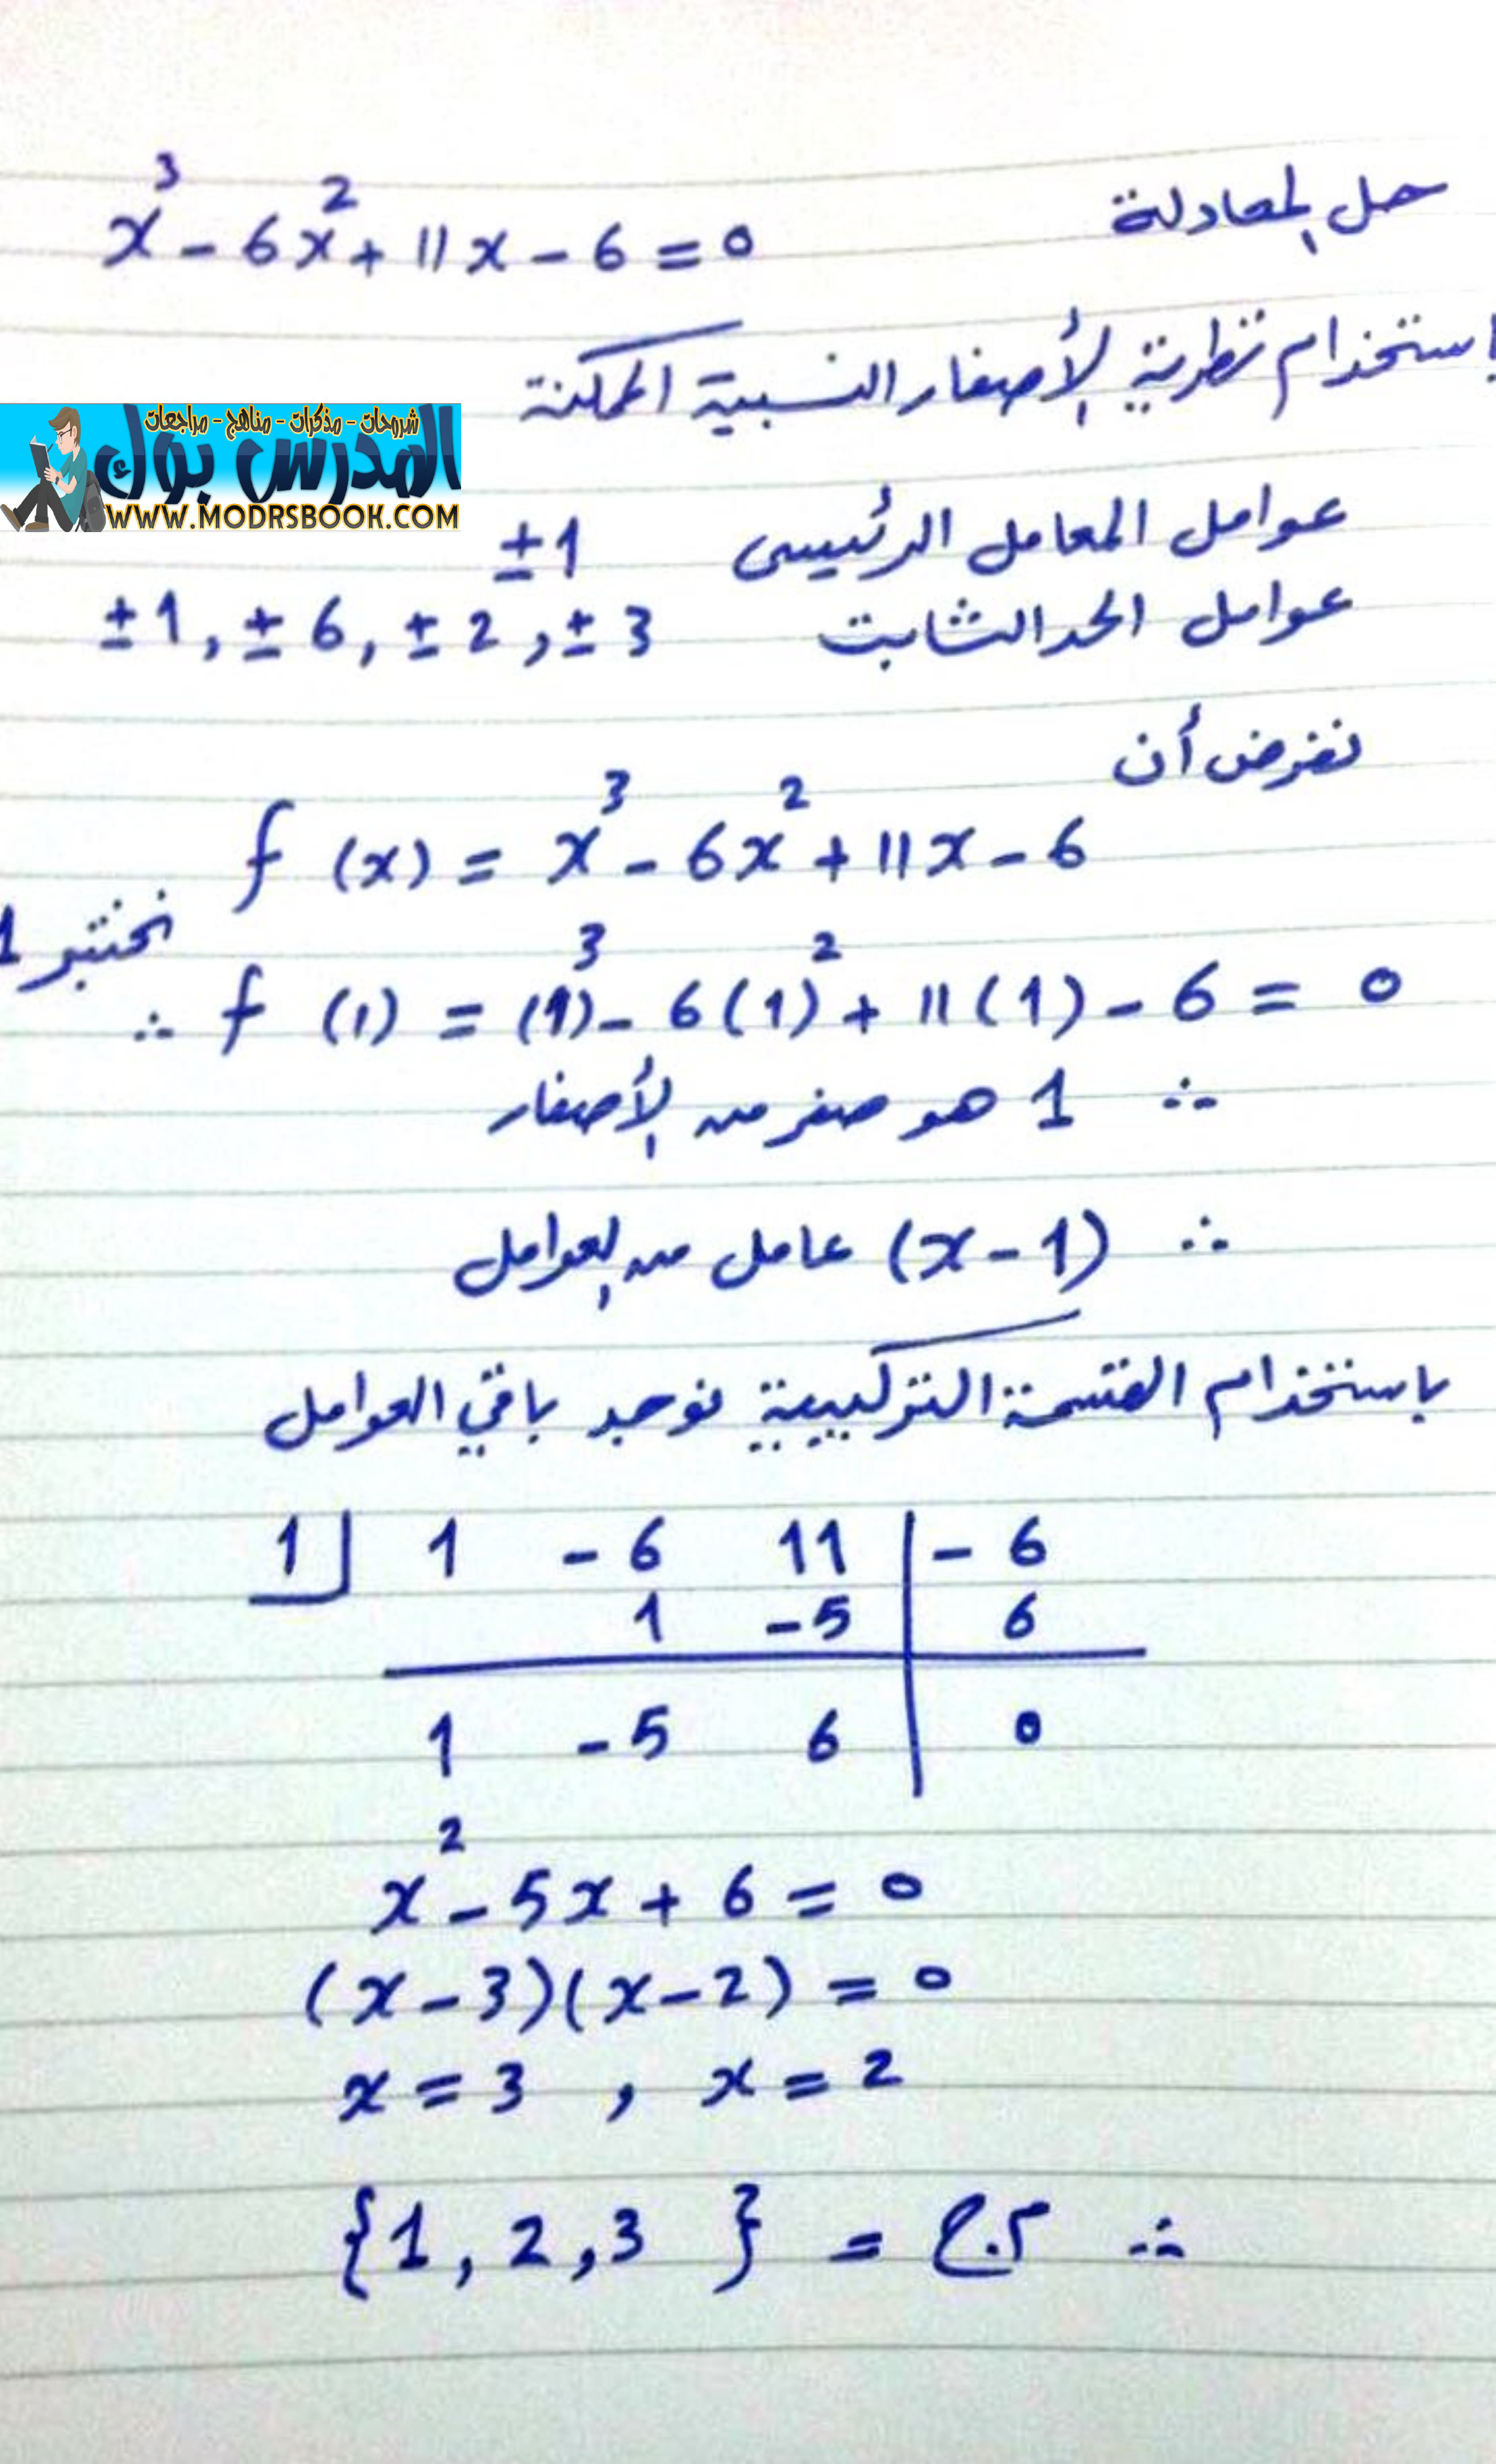 حل المعادلة x³ - 6x² + 11x - 6 = 0
باستخدام نظرية الأصفار النسبية الممكنة
شروحات - مذكرات - مناهج - مراجعات
المدرس بوك
WWW.MODRSBOOK.COM
عوامل المعامل الرئيسى ±1
عوامل الحد الثابت ±1, ±6, ±2, ±3
نفرض أن
f (x) = x³ - 6x² + 11x - 6
نختبر 1
∴ f (1) = (1)³ - 6(1)² + 11(1) - 6 = 0
∴ 1 هو صفر من الأصفار
∴ (x-1) عامل من العوامل
باستخدام القسمة التركيبية نوجد باقي العوامل
1 | 1 -6 11 | -6
1 -5 | 6
1 -5 6 | 0
x² - 5x + 6 = 0
(x-3)(x-2) = 0
x = 3 , x = 2
∴ م.ح = {1, 2, 3}